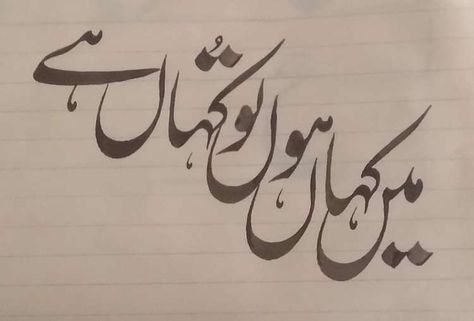 میں کہاں ہوں تُو کہاں ہے